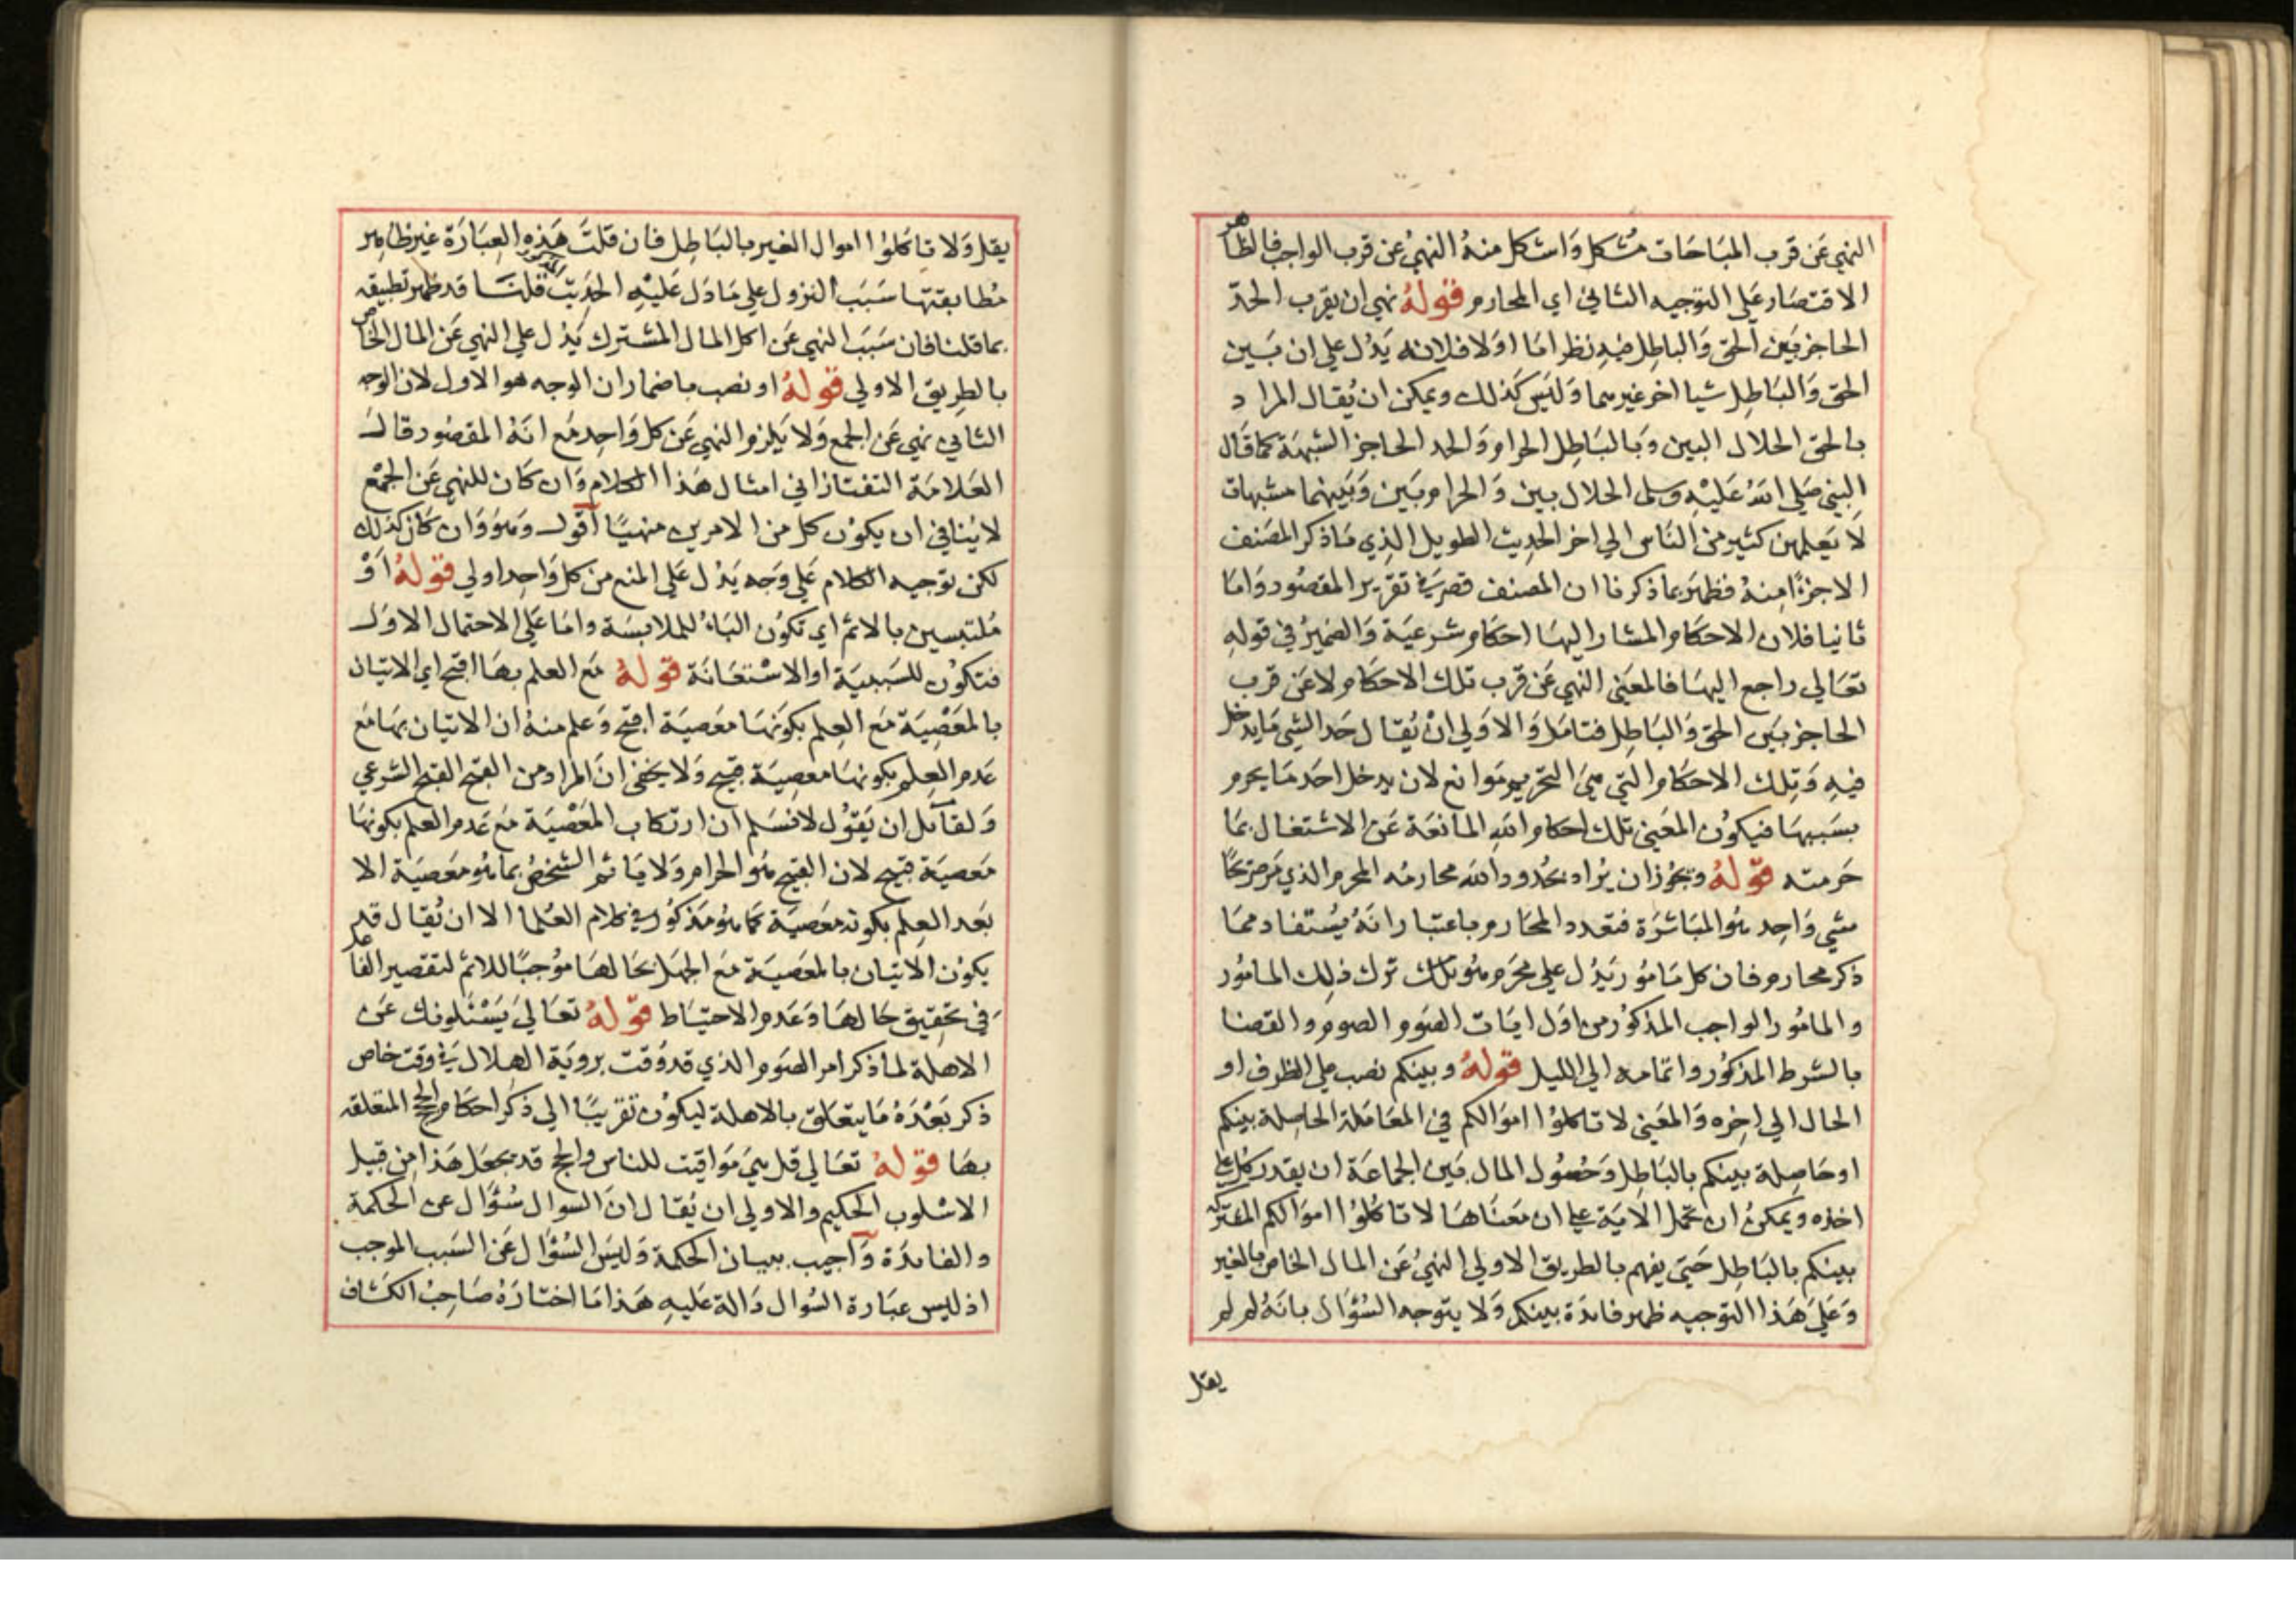 النهي عن قرب المباحات مشكل واشكل منه النهي عن قرب الواجب فالظاهر
الاقتصار على التوجيه الثاني اي المحارم قوله نهي ان يقرب الحد
الحاجز بين الحق والباطل فيه نظر اما اولا فلانه يدل علي ان بين
الحق والباطل شيا اخر غيرهما وليس كذلك ويمكن ان يقال المراد
بالحق الحلال البين وبالباطل الحرام والحد الحاجز الشبهة كما قال
النبي صلى الله عليه وسلم الحلال بين والحرام بين وبينهما مشبهات
لا يعلمهن كثير من الناس الي اخر الحديث الطويل الذي ما ذكر المصنف
الا جزءا منه فظهر بما ذكرنا ان المصنف قصر في تقرير المقصود واما
ثانيا فلان الاحكام المشار اليها احكام شرعية والضمير في قوله
تعالي راجع اليها فالمعنى النهي عن قرب تلك الاحكام لا عن قرب
الحاجز بين الحق والباطل فتامل والاولي ان يقال حد الشي ما يدخل
فيه وتلك الاحكام التي هي التحريم موانع لان يدخل احد ما يحرم
بسببها فيكون المعنى تلك احكام الله المانعة عن الاشتغال بما
حرمته قوله ويجوز ان يراد بحدود الله محارمه المحرم الذي مر صريحا
شي واحد هو المباشرة فتعدد المحارم باعتبار انه يستفاد مما
ذكر محارم فان كل مامور يدل علي محرم هو ترك ذلك المامور
والمامور الواجب المذكور من اول ايات الصوم الصوم والقضا
بالشرط المذكور واتمامه الي الليل قوله وبينكم نصب علي الظرف او
الحال الي اخره والمعنى لا تاكلوا اموالكم في المعاملة الحاصلة بينكم
او حاصلة بينكم بالباطل وحصول المال بين الجماعة ان يقدر كل علي
اخذه ويمكن ان تحمل الاية علي ان معناها لا تاكلوا اموالكم المشتركة
بينكم بالباطل حتى يفهم بالطريق الاولي النهي عن المال الخاص بالغير
وعلى هذا التوجيه ظهر فائدة بينكم ولا يتوجه السؤال بانه لم لم
يقل
يقل ولا تاكلوا اموال الغير بالباطل فان قلت هذه العبارة غير ظاهر
مطابقتها سبب النزول علي ما دل عليه الحديث قلنا قد ظهر تطبيقه
بما قلنا فان سبب النهي عن اكل المال المشترك يدل علي النهي عن المال الخاص
بالطريق الاولي قوله او نصب باضمار ان الوجه هو الاول لان الوجه
الثاني نهي عن الجمع ولا يلزم النهي عن كل واحد مع انه المقصود قال
العلامة التفتازاني امثال هذا الكلام وان كان للنهي عن الجمع
لا ينافي ان يكون كل من الامرين منهيا اقول وهو وان كان كذلك
لكن توجيه الكلام علي وجه يدل علي المنع من كل واحد اولي قوله او
ملتبسين بالاثم اي تكون الباء للملابسة واما علي الاحتمال الاول
فتكون للسببية او الاستعانة قوله مع العلم بها اقبح اي الاتيان
بالمعصية مع العلم بكونها معصية اقبح وعلم منه ان الاتيان بها مع
عدم العلم بكونها معصية قبيح ولا يخفى ان المراد من القبح القبح الشرعي
ولقائل ان يقول لا نسلم ان ارتكاب المعصية مع عدم العلم بكونها
معصية قبيح لان القبيح هو الحرام ولا ياثم الشخص بما هو معصية الا
بعد العلم بكونه معصية كما هو مذكور في كلام العلما الا ان يقال قد
يكون الاتيان بالمعصية مع الجهل بحالها موجبا للاثم لتقصير الفاعل
في تحقيق حالها وعدم الاحتياط قوله تعالي يسئلونك عن
الاهلة لما ذكر امر الصوم الذي قد وقت بروية الهلال في وقت خاص
ذكر بعده ما يتعلق بالاهلة ليكون تقريبا الي ذكر احكام الحج المتعلقه
بها قوله تعالي قل هي مواقيت للناس والحج قد يجعل هذا من قبيل
الاسلوب الحكيم والاولي ان يقال ان السوال سؤال عن الحكمة
والفائدة واجيب ببيان الحكمة وليس السؤال عن السبب الموجب
اذ ليس عبارة السوال دالة عليه هذا ما اختاره صاحب الكشاف